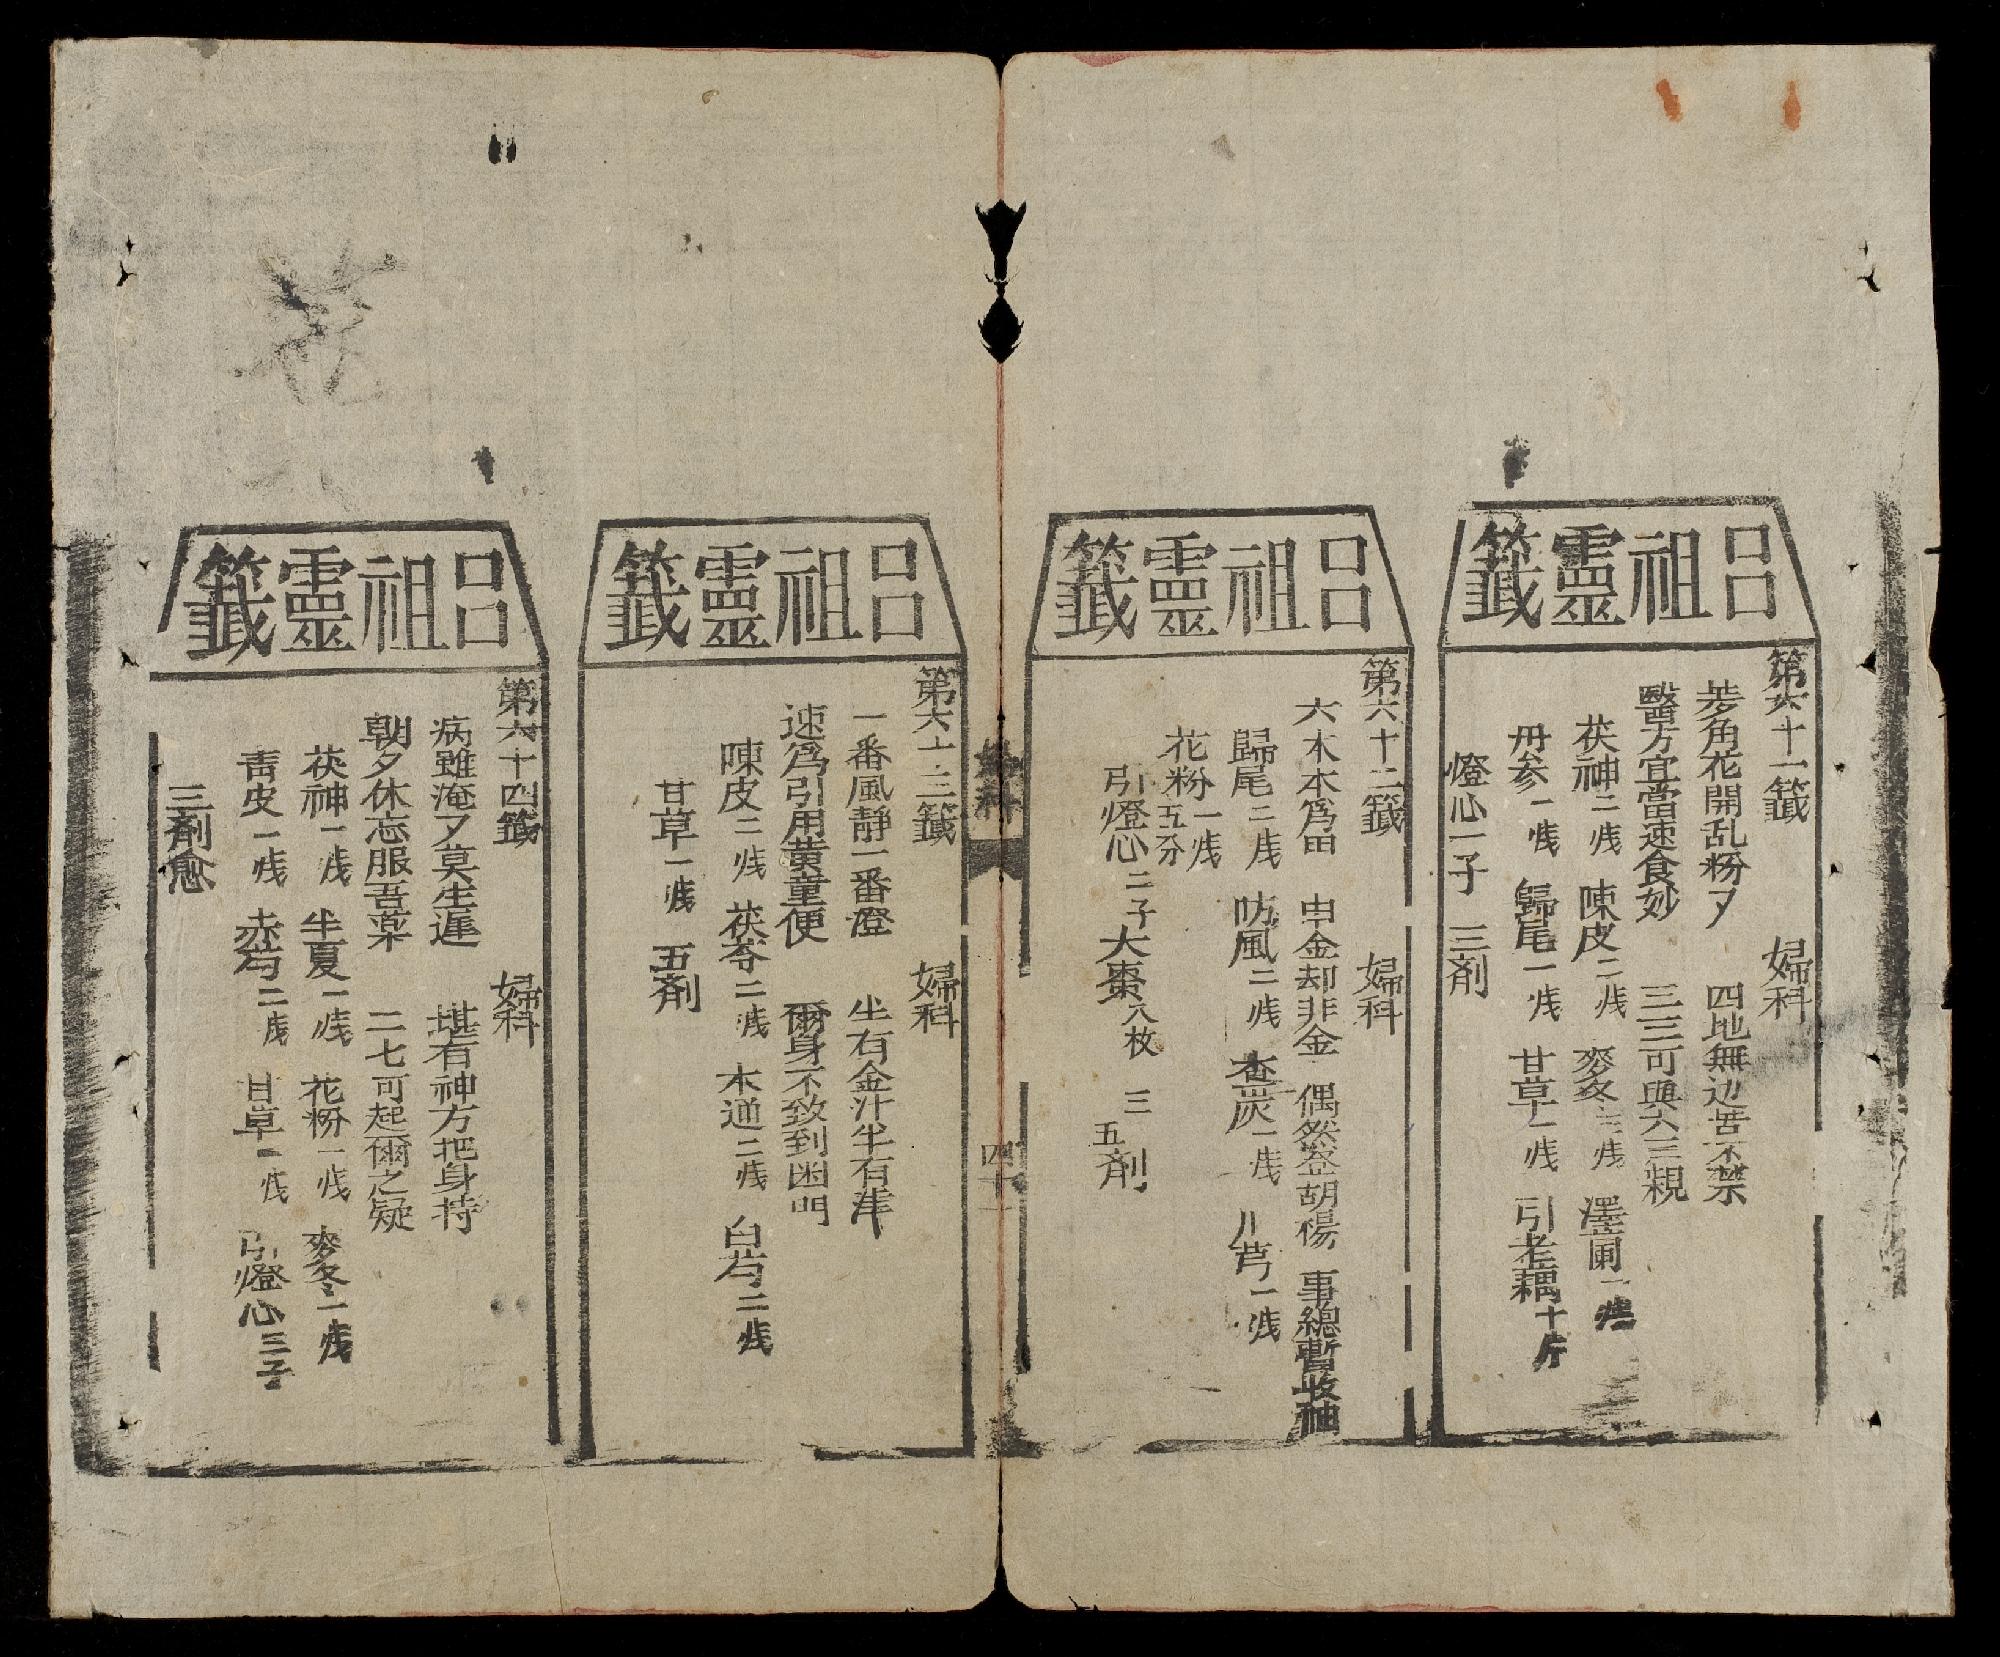 呂祖靈籤
第六十一籤　婦科
菱角花開乱粉々　四地無边苦不禁
醫方宜當速食妙　三三可與六三親
茯神二戋　陳皮二戋　麥冬二戋　澤蘭一戋
丹参一戋　歸尾一戋　甘草一戋　引老藕十斤
燈心一子　三剤
呂祖靈籤
第六十二籤　婦科
六木本為田　申金却非金　偶然登胡楊　事總暫收神
歸尾二戋　防風二戋　查炭一戋　川芎一戋
花粉一戋五分
引燈心二子大棗八枚　三五剤
婦科
四十
呂祖靈籤
第六十三籤　婦科
一番風静一番澄　坐有金汁半有洋
速為引用黄童便　爾身不致到幽門
陳皮二戋　茯苓二戋　木通二戋　白芍二戋
甘草一戋　五剤
呂祖靈籤
第六十四籤　婦科
病雖淹久莫生遲　堪有神方把身持
朝夕休忘服吾薬　二七可起爾之疑
茯神一戋　半夏一戋　花粉一戋　麥冬一戋
青皮一戋　赤芍二戋　甘草一戋　引燈心三子
三剤愈